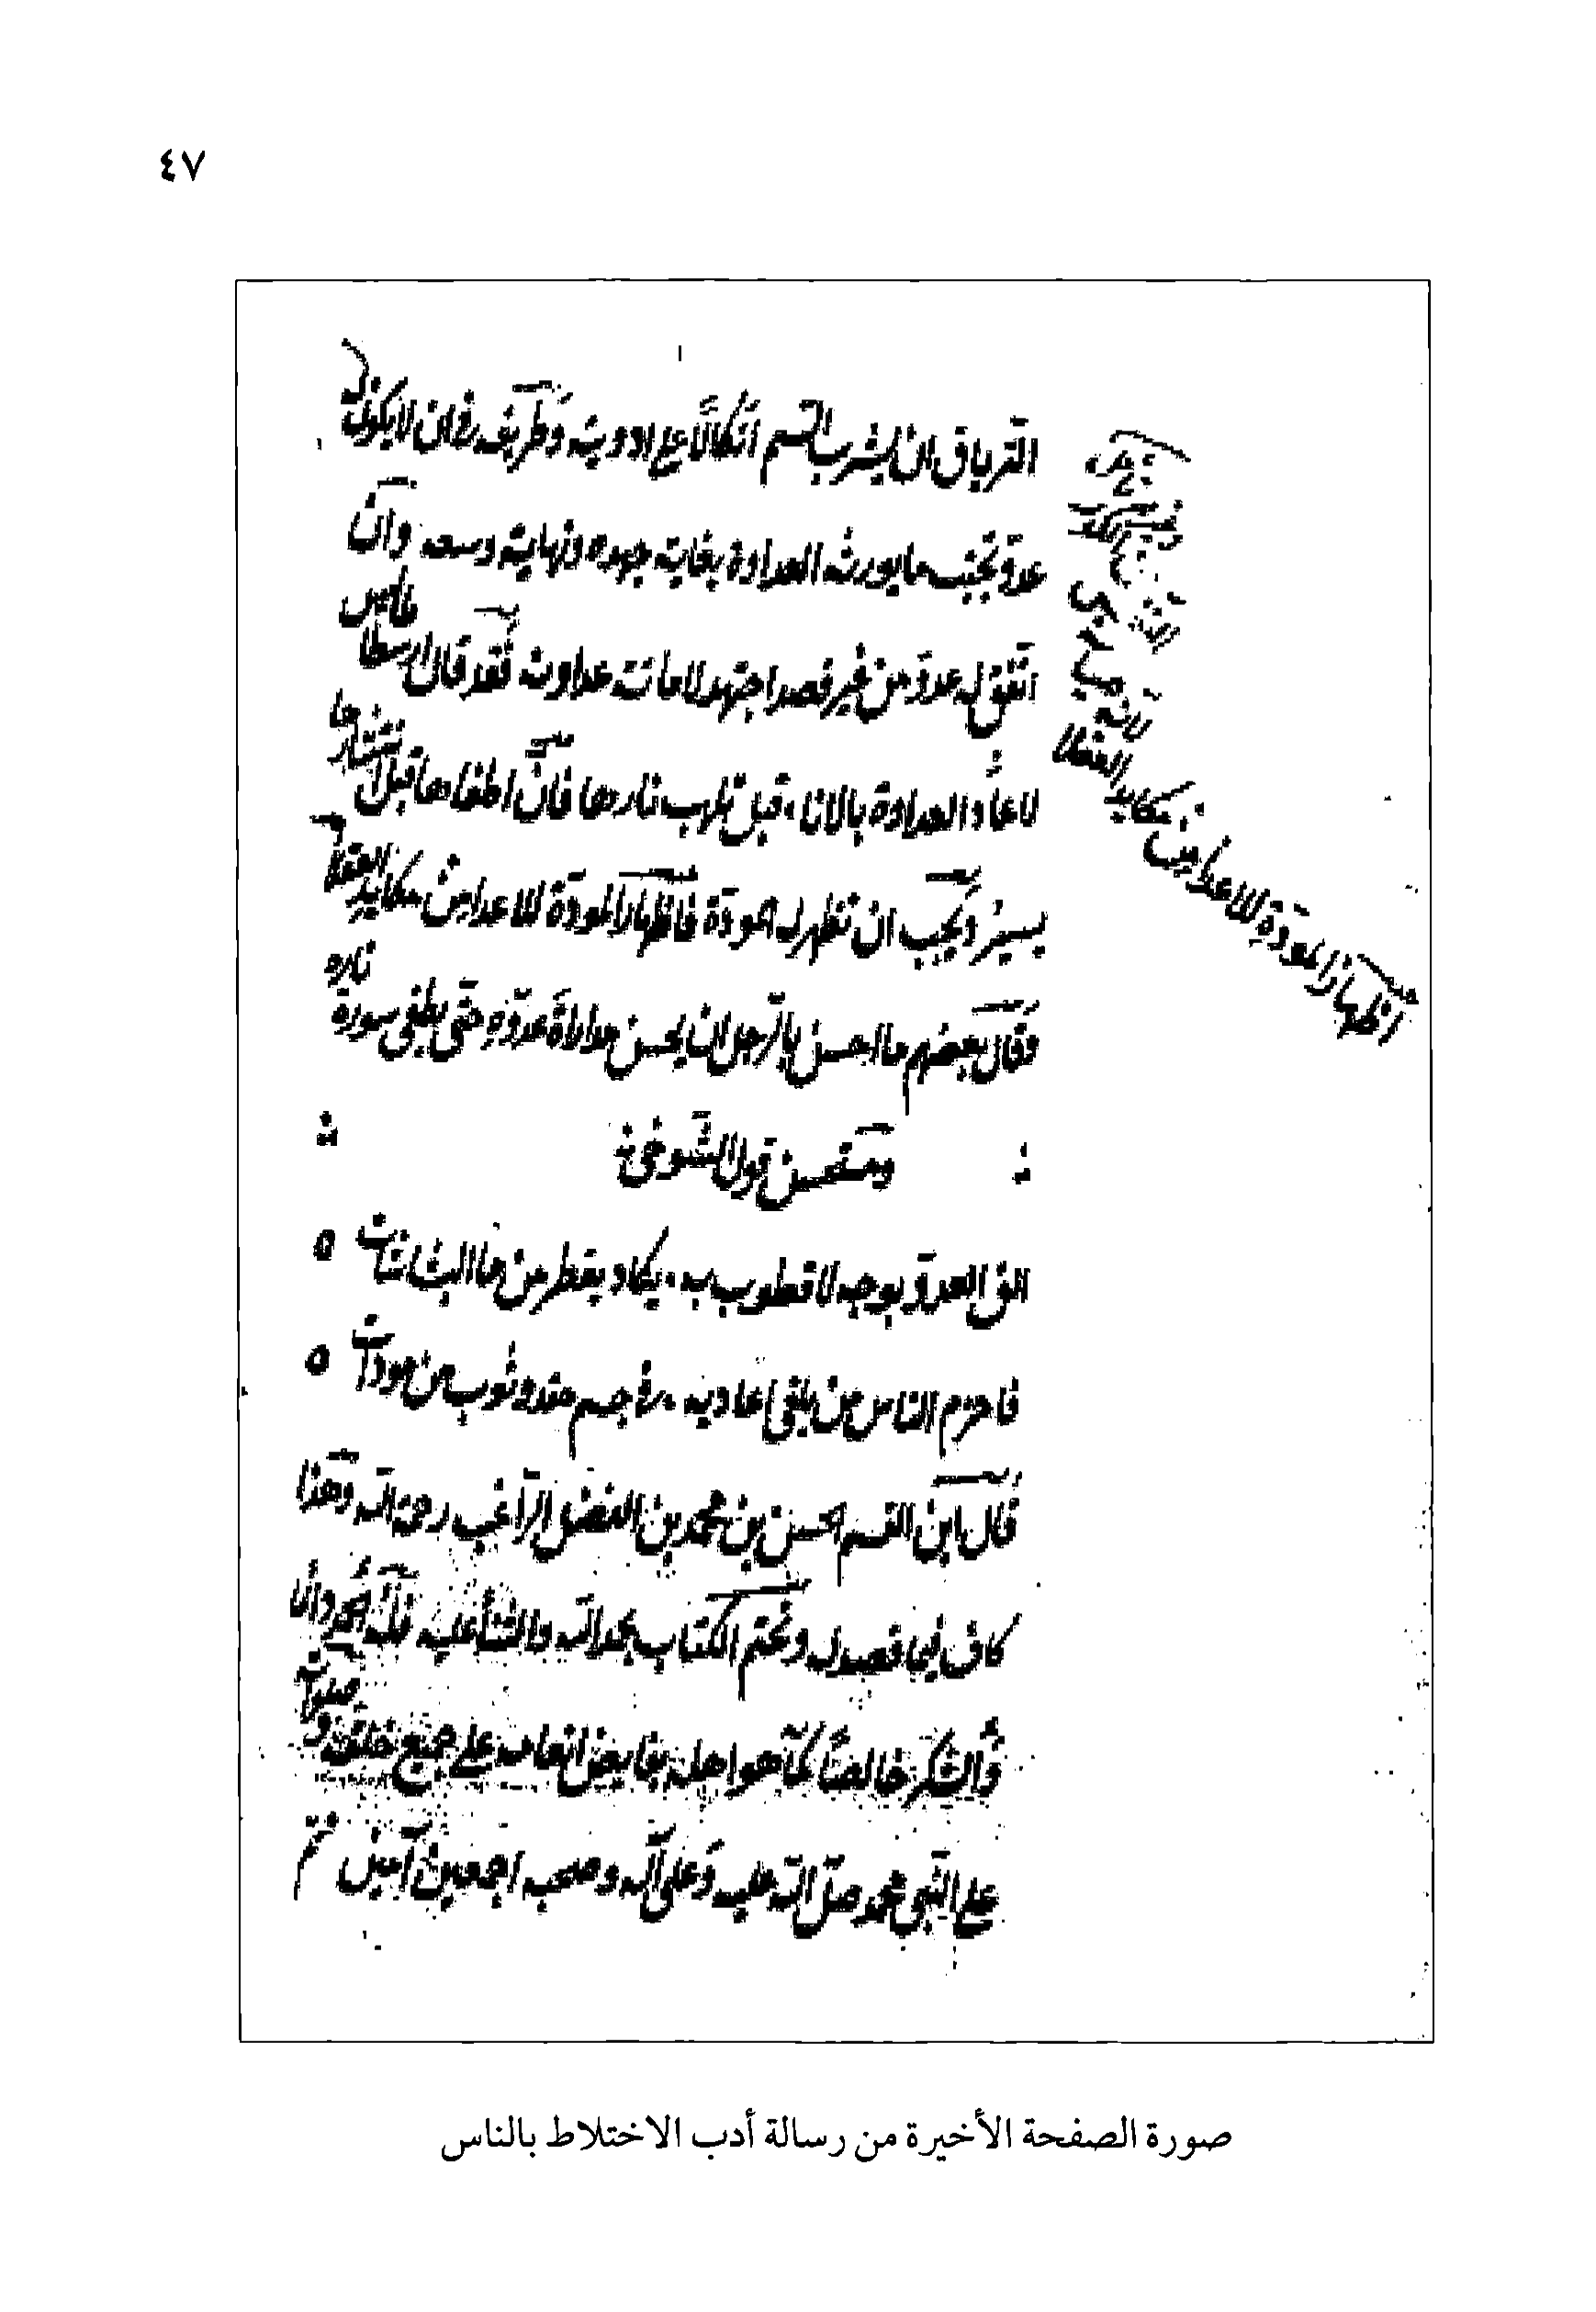 ٤٧
الترياق ان يشرب السم اتكالا على ادويته وطريقه في ان لا يكون له
عدو تجنب ما يورث العداوة بغاية جهده ونهاية وسعه وان
اتفق له عدو من غير قصد اجتهد لاماتت عداوته فقد قال ارسطاطاليس
العداوة بالاناء قبل تلهب نارها فان اطفاءها قبل انتشارها
يسير ويجب ان تظهر له مودة فاظهار المودة للاعداء من مكايد العقلاء
وقال بعضهم ما احسن بالرجل ان يحسن مداراة عدوه حتى يطفى سورة ناره
ومستحسن قول التنوخي
الق العدو بوجه لا قطوب به يكاد يقطر من ماء البشاشات
فاحزم الناس من يلقى اعاديه في جسم حقد وثوب من مودات
قال ابن القسم الحسن بن محمد بن الفضل الراغب رحمه الله وهذا
كاف فيما قصد له ونختم الكتاب بحمد الله والثنا عليه فله الحمد دائما
والشكر خالصا كما هو اهله بفايض انعامه على جميع خلقه وصلواته
على النبي محمد صلى الله عليه وعلى آله وصحبه اجمعين آمين تم
اظهار المودة للاعداء من مكايد العقلا
صورة الصفحة الأخيرة من رسالة أدب الاختلاط بالناس